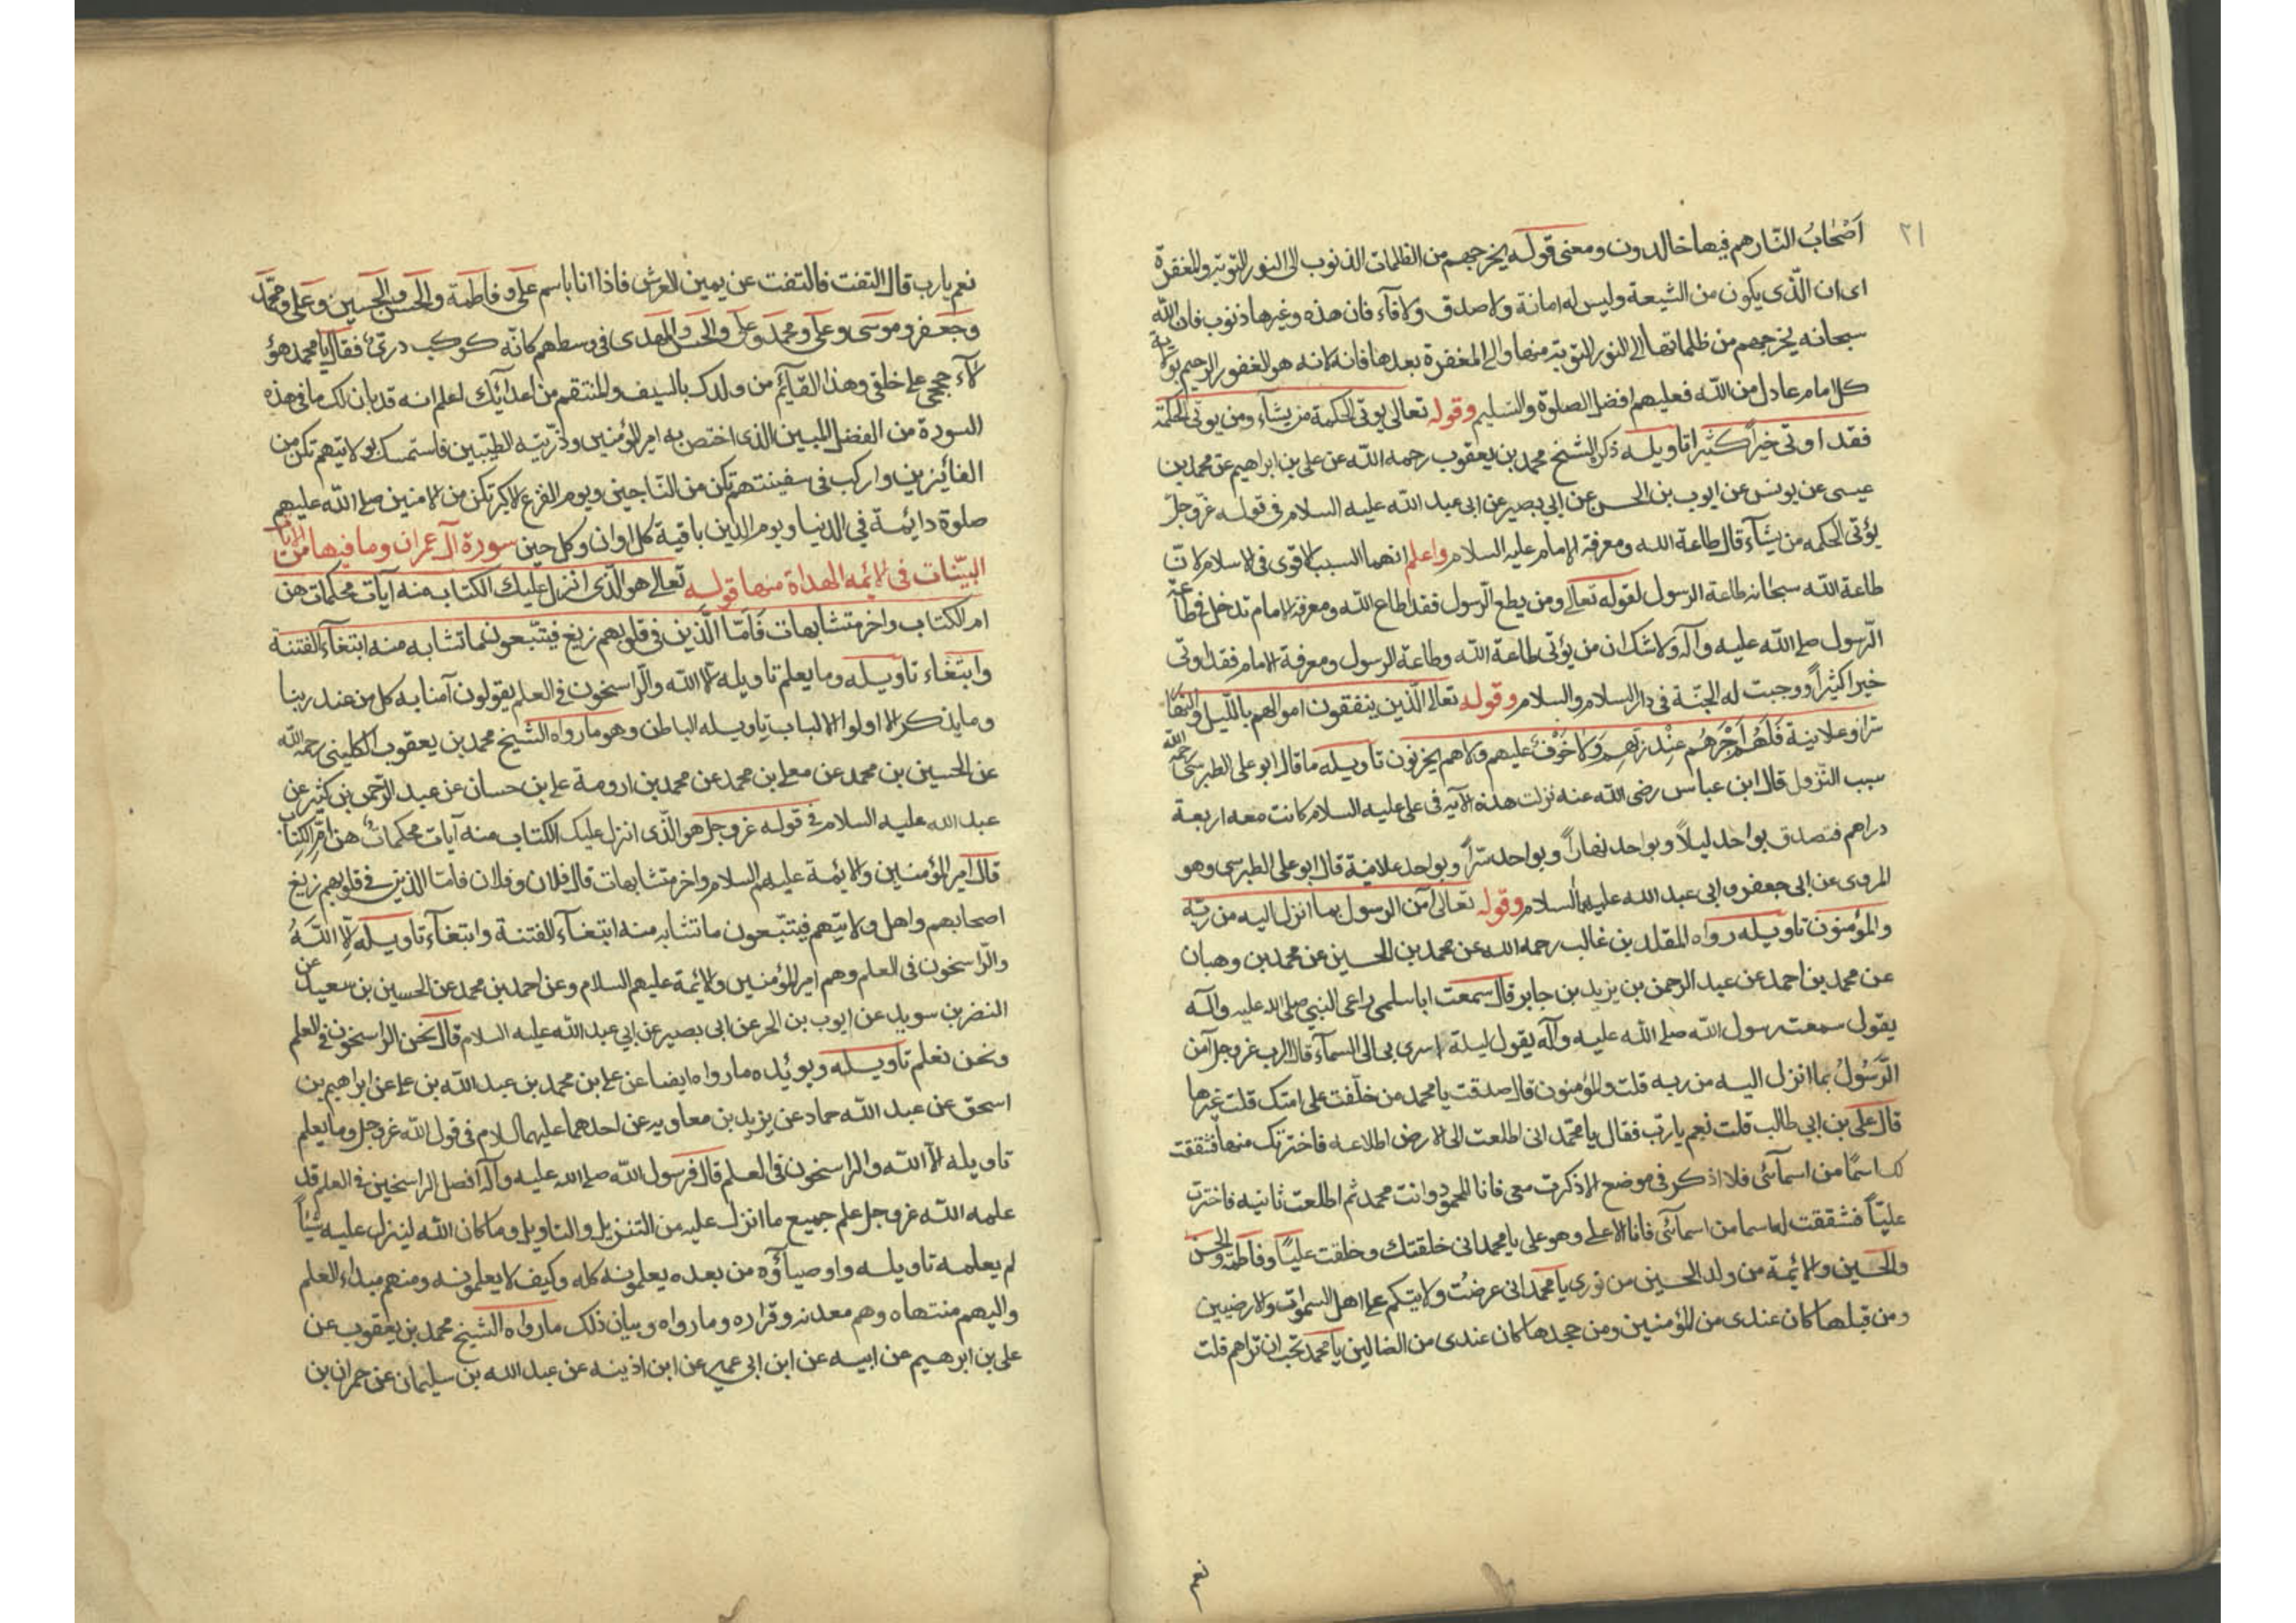 ٢١
اَصْحَابُ النّار هم فيها خالدون ومعنى قوله يخرجهم من الظلمات الذنوب الى النور التوبة والمغفرة
اى ان الّذى يكون من الشيعة وليس له امانة ولا صدق ولا وفآء فان هذه وغيرها ذنوب فان الله
سبحانه يخرجهم من ظلماتها الى النور التوبة منها والى المغفرة بعدها فانه لانه هو الغفور الرحيم بولاية
كل امام عادل من الله فعليهم افضل الصلوة والتسليم وقوله تعالى يؤتى الحكمة من يشآء ومن يوتى الحكمة
فقد اوتى خيراً كثيرا تاويله ذكره الشيخ محمد بن يعقوب رحمه الله عن على بن ابراهيم عن محمد بن
عيسى عن يونس عن ايوب بن الحسن عن ابي بصير عن ابى عبد الله عليه السلام فى قوله عزّ وجلّ
يؤتى الحكمه من يشآء قال طاعة الله ومعرفة الإمام عليه السلام واعلم انهما السبب الاقوى فى الاسلام لانّ
طاعة الله سبحانه طاعة الرسول لقوله تعالى ومن يطع الرّسول فقد اطاع الله ومعرفة الامام تدخل فى طاعة
الرّسول صلى الله عليه وآله ولا شك ان من يؤتى طاعة الله وطاعة الرسول ومعرفة الامام فقد اوتى
خيرا كثيراً ووجبت له الجنّة فى دار السلام والسلام وقوله تعالى الّذين ينفقون اموالهم بالليل والنهار
سرّا وعلانية فَلَهُمْ اَجْرُهُم عِنْدَ رَبِّهِم وَلا خَوْفٌ عليهم ولا هم يحزنون تاويله ما قال ابو على الطبرسى رحمه الله
سبب النّزول قال ابن عباس رضى الله عنه نزلت هذه الآيه فى على عليه السلام كانت معه اربعة
دراهم فتصدق بواحد ليلاً وبواحد نهاراً وبواحد سرّاً وبواحد علانية قال ابو على الطبرسى وهو
المروى عن ابى جعفر وابى عبد الله عليهما السلام وقوله تعالى آمن الرسول بما انزل اليه من ربّه
والمؤمنون تاويله رواه المقلد بن غالب رحمه الله عن محمد بن الحسين عن محمد بن وهبان
عن محمد بن احمد عن عبد الرحمن بن يزيد بن جابر قال سمعت ابا سلمى راعى النبي صلى الله عليه وآله
يقول سمعت رسول الله صلى الله عليه وآله يقول ليلة اسرى بى الى السمآء قال الرب عز وجل آمن
الرَّسُولُ بما انزل اليه من ربه قلت والمؤمنون قال صدقت يا محمد من خلّفت على امتك قلت خيرها
قال على بن ابي طالب قلت نعم يا ربّ فقال يا محمّد انى اطلعت الى الارض اطلاعه فاخترتك منها فشققت
لك اسمًا من اسمآئى فلا اذكر فى موضع الا ذكرت معى فانا المحمود وانت محمد ثم اطلعت ثانيه فاخترت
عليّاً فشققت لها سما من اسمآئى فانا الاعلى وهو على يا محمد انى خلقتك وخلقت عليّاً وفاطمة والحسن
والحسين والائمة من ولد الحسين من نورى يا محمد انى عرضت ولايتكم على اهل السموات والارضيين
ومن قبلها كان عندى من المؤمنين ومن جحدها كان عندى من الضالين يا محمد تحب ان تراهم قلت
نعم
نعم يا رب قال التفت فالتفت عن يمين العرش فاذا انا باسم على وفاطمة والحسن والحسين وعلى ومحمّد
وجعفر وموسى وعلى ومحمد وعلى والحسن والمهدى فى وسطهم كانّه كوكب درىّ فقال يا محمد هؤ
لآء حججى على خلقى وهذا القآئم من ولدك بالسيف والمنتقم من اعدآئك اعلم انه قد بان لك ما فى هذه
السورة من الفضل المبين الذى اختص به امير المؤمنين وذرّيته الطيّبين فاستمسك بولايتهم تكن من
الفائزين واركب فى سفينتهم تكن من النّاجين ويوم الفزع الاكبر تكن من الامنين صلى الله عليهم
صلوة دايمة في الدنيا ويوم الدين باقية كل اوان وكل حين سورة آل عمران وما فيها من الآيات
البيّنات فى الائمه الهداة منها قوله تعالى هو الّذى انزل عليك الكتاب منه آيات محكمات هن
ام الكتاب واخر متشابهات فَاَمّا الَّذين فى قلوبهم زيغ فيتّبعون ما تشابه منه ابتغآء الفتنة
وابتغاء تاويله وما يعلم تاويله الا الله والرّاسخون فى العلم يقولون آمنا به كل من عند ربنا
وما يذكر الا اولوا الالباب تاويله الباطن وهو ما رواه الشيخ محمد بن يعقوب الكلينى رحمه الله
عن الحسين بن محمد عن معلى بن محمد عن محمد بن ارومة على بن حسان عن عبد الرّحمن بن كثير عن
عبد الله عليه السلام فى قوله عز وجل هو الّذى انزل عليك الكتاب منه آيات محكماتٌ هن ام الكتاب
قال امير المؤمنين والايمة عليهم السلام واخر متشابهات قال فلان وفلان فامّا الذين فى قلوبهم زيغ
اصحابهم واهل ولايتهم فيتّبعون ما تشابه منه ابتغآء الفتنة وابتغآء تاويله الّا اللهُ
والرّاسخون فى العلم وهم امير المؤمنين والايمة عليهم السلام وعن احمد بن محمد عن الحسين بن سعيد عن
النضر بن سويد عن ايوب بن الحر عن ابى بصير عن ابي عبد الله عليه السلام قال نحن الراسخون فى العلم
ونحن نعلم تاويله ويوئده ما رواه ايضا عن على بن محمد بن عبد الله بن على عن ابراهيم بن
اسحق عن عبد الله حماد عن يزيد بن معاويه عن احدهما عليهما السلام فى قول الله عز وجل وما يعلم
تاويله الّا الله والراسخون فى العلم قال فرسول الله صلى الله عليه وآله افضل الراسخين فى العلم قد
علمه الله عز وجل علم جميع ما انزل عليه من التنزيل والتاويل وما كان الله لينزل عليه شيئاً
لم يعلمه تاويله واوصيآؤه من بعده يعلمونه كله وكيف لا يعلمونه ومنهم مبداء العلم
واليهم منتهاه وهم معدنه وقراره وما رواه وبيان ذلك ما رواه الشيخ محمد بن يعقوب عن
على بن ابرهيم عن ابيه عن ابن ابى عمير عن ابن اذينه عن عبد الله بن سليمان عن حمران بن